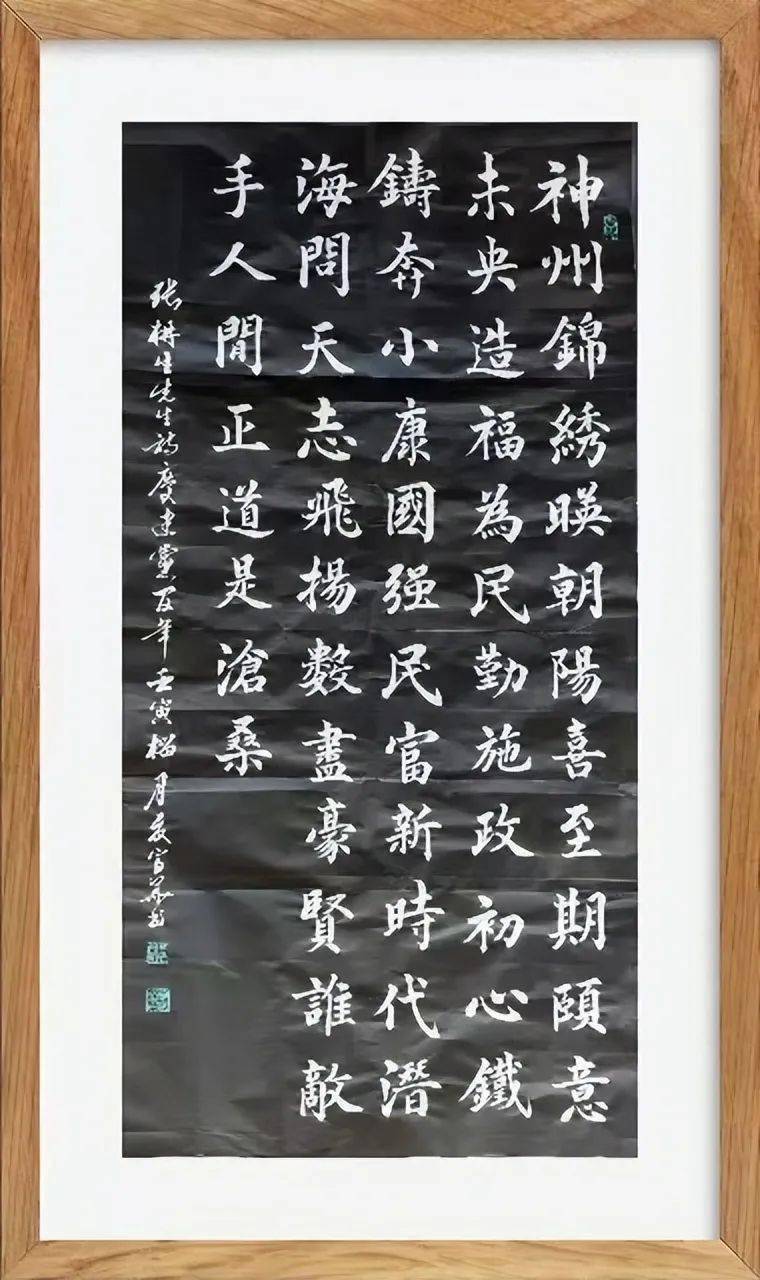 神州錦綉暎朝陽喜至期頤意
未央造福為民勤施政初心鐵
鑄奔小康國强民富新時代潛
海問天志飛揚數盡豪賢誰敵
手人間正道是滄桑
生先生詩慶建黨百年壬寅榴月